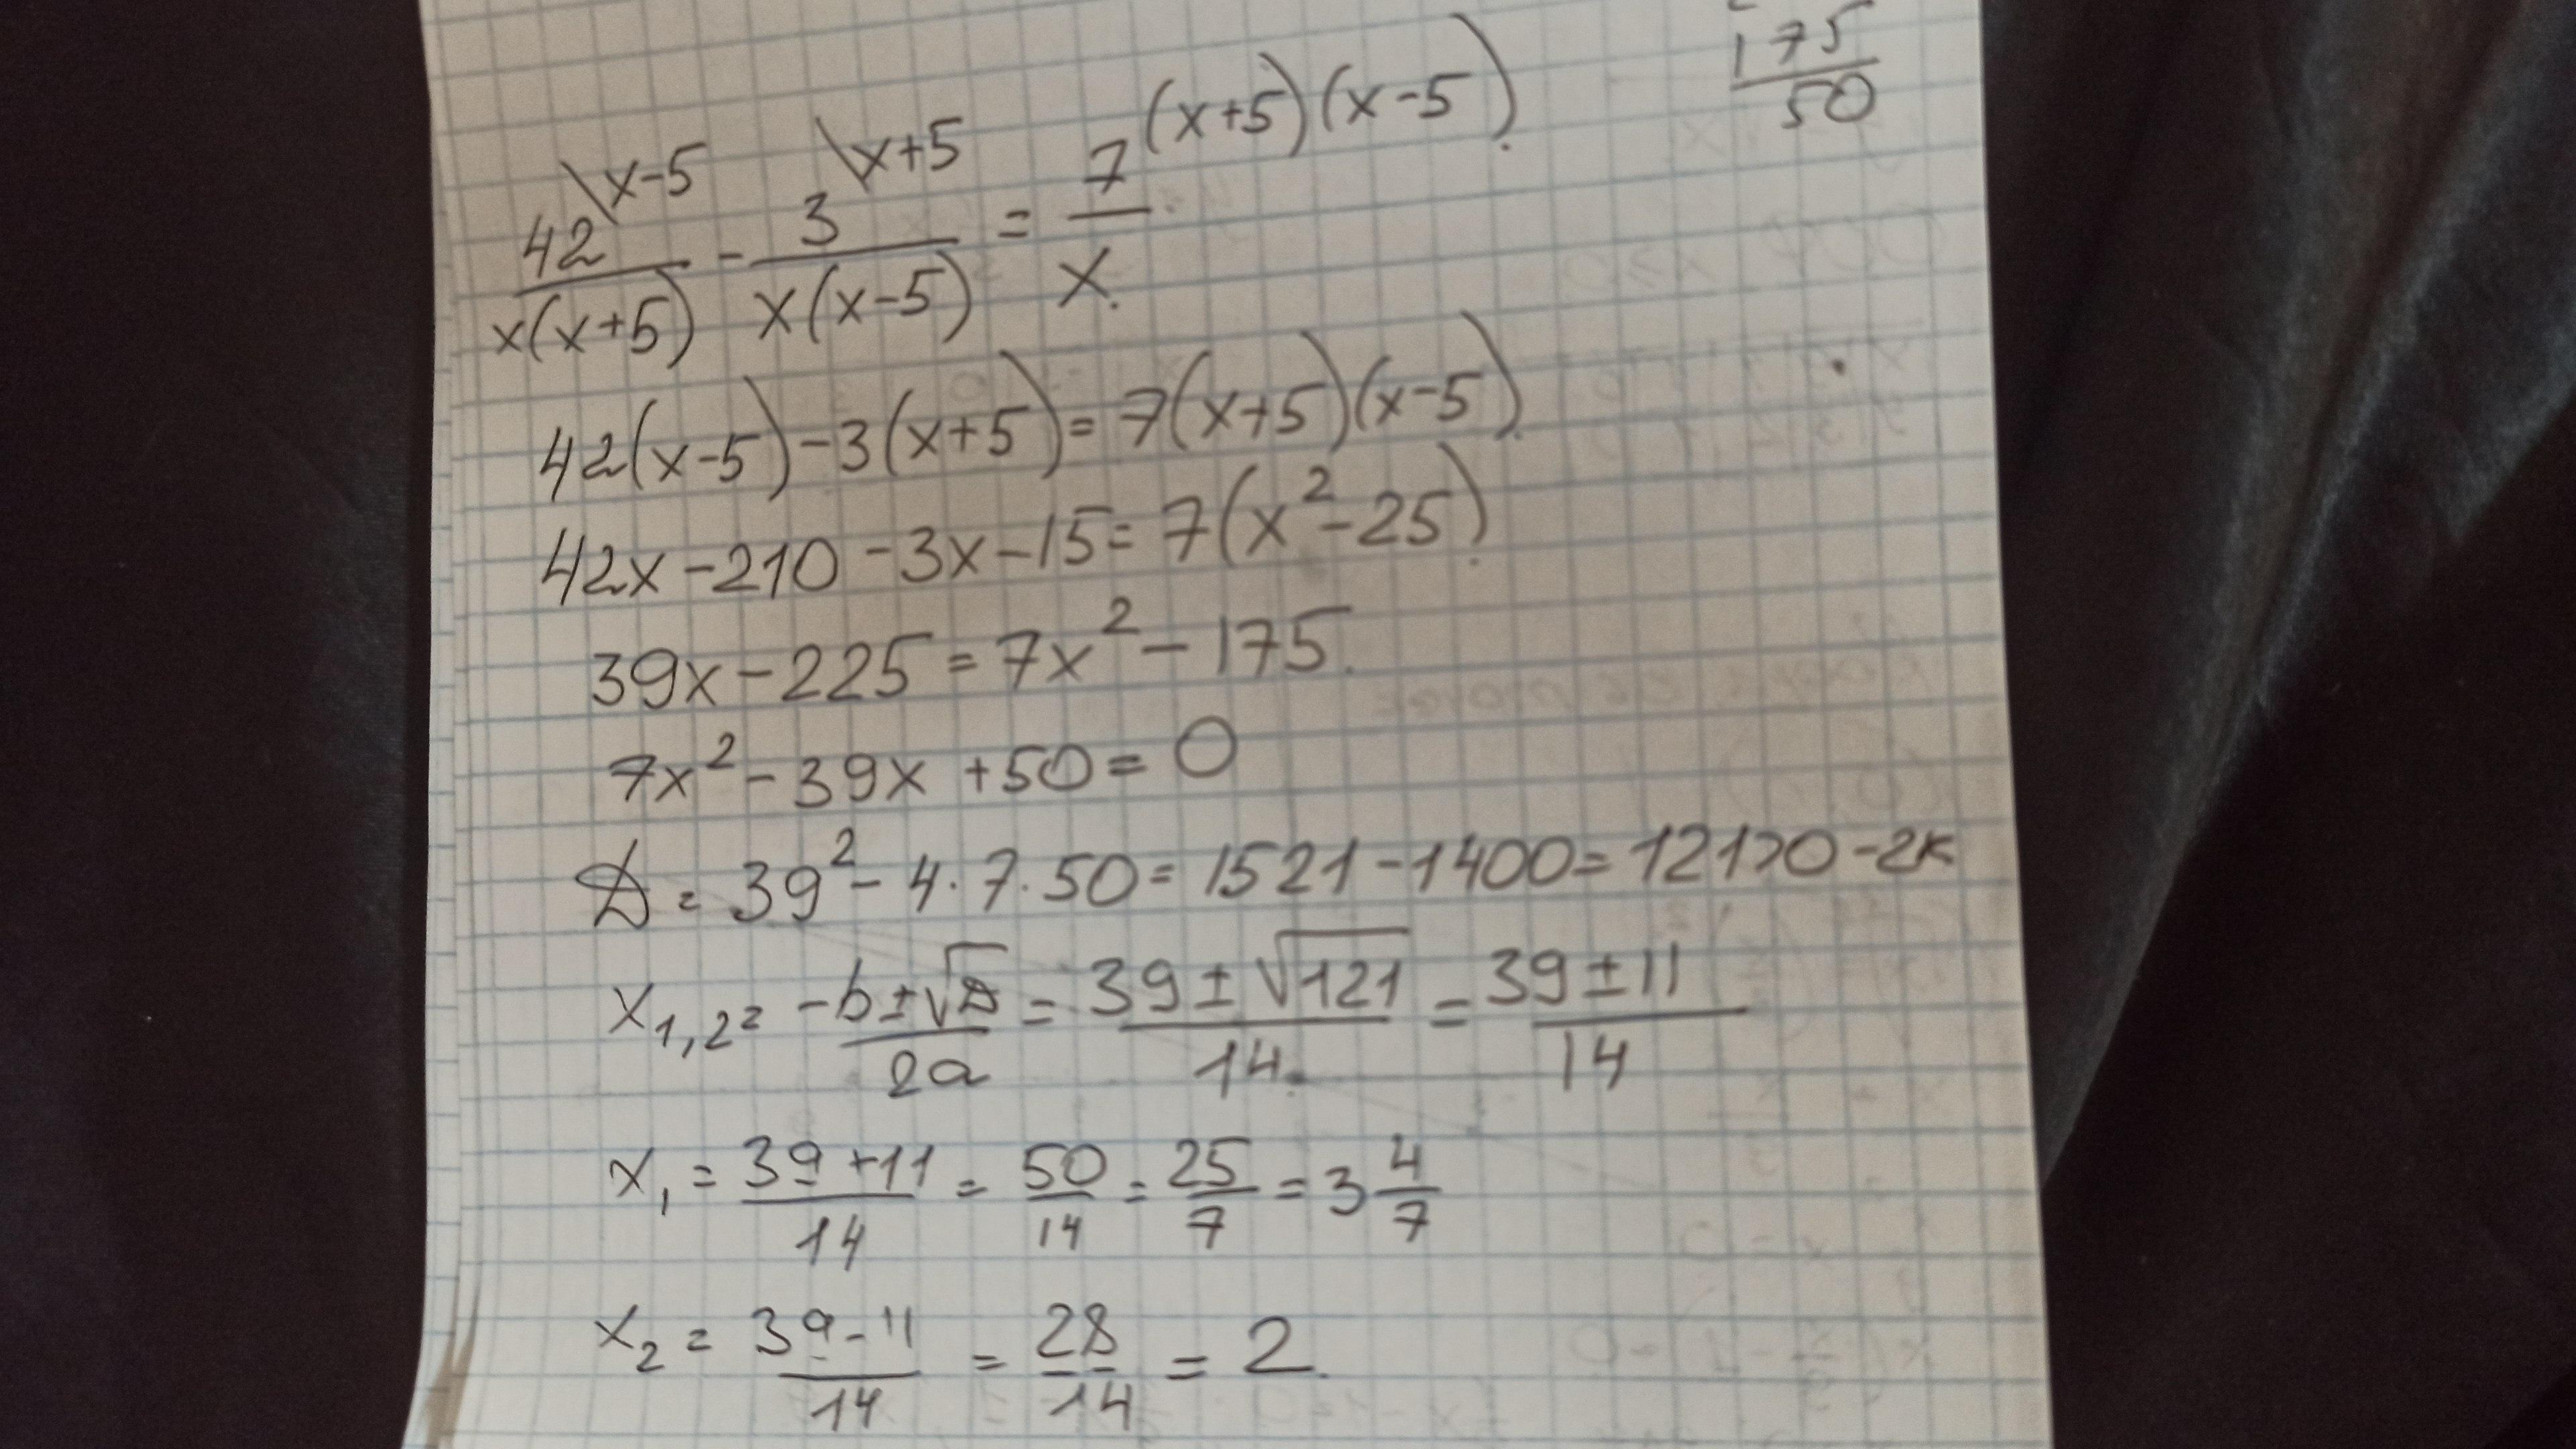 175
50
42\x-5 / x(x+5) - 3\x+5 / x(x-5) = 7(x+5)(x-5) / x.
42(x-5)-3(x+5)=7(x+5)(x-5).
42x-210-3x-15=7(x²-25).
39x-225=7x²-175.
7x²-39x+50=0
D=39²-4·7·50=1521-1400=121>0-2к
x₁,₂= -b±√D / 2a = 39±√121 / 14. = 39±11 / 14
x₁= 39+11 / 14 = 50 / 14 = 25 / 7 = 3 4/7
x₂= 39-11 / 14 = 28 / 14 = 2.